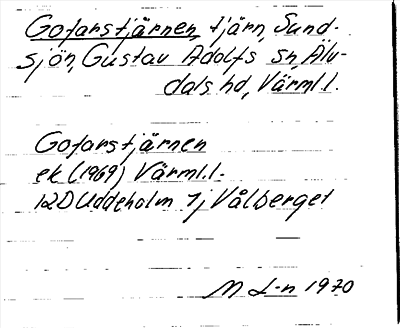 Gofarstjärnen tjärn, Sund-
sjön, Gustav Adolfs sn, Älv-
dals hd, Värml.l.
Gofarstjärnen
ek (1969) Värml.l.
12D Uddeholm 7j Vålberget
M L-n 1970